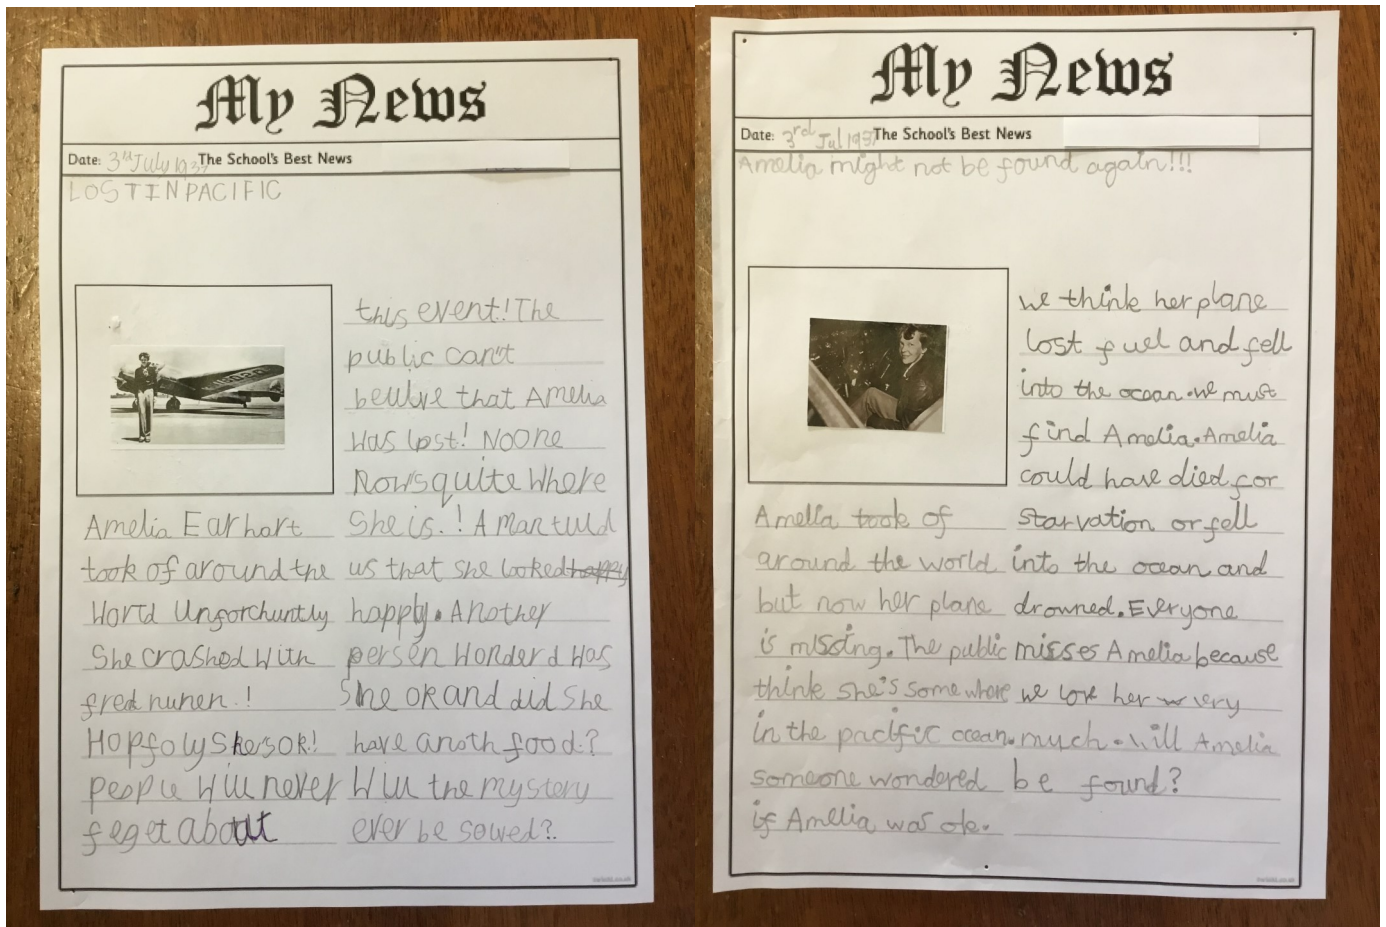 My News
Date: 3rd July 1937 The School's Best News
LOST IN PACIFIC
Amelia Earhart
took of around the
World Unforchuntly
She crashed With
fred nunen.!
Hopfoly Shesok!
people Will never
feget about
this event! The
public can't
beulive that Amelia
was lost! Noone
Nows quite Where
She is.! A man tuld
us that she looked happy
happy. Another
persen Wonderd Was
She ok and did She
have anoth food.?
Will the mystery
ever be solved?.
My News
Date: 3rd Jul 1937 The School's Best News
Amelia might not be found again!!!
Amelia took of
around the world
but now her plane
is missing. The public
think she's somewhere
in the pacific ocean.
someone wondered
if Amelia was ok.
we think her plane
lost fuel and fell
into the ocean. we must
find Amelia. Amelia
could have died for
starvation or fell
into the ocean and
drowned. Everyone
misses Amelia because
we love her very
much. will Amelia
be found?